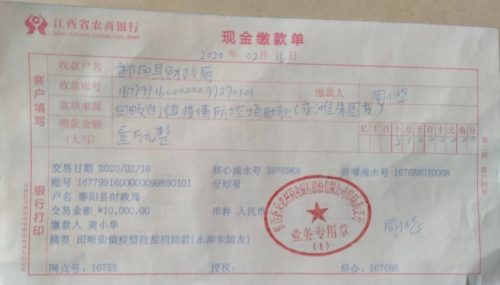 江西省农商银行
JIANGXI RURAL COMMERCIAL BANK
现金缴款单
2020 年 02 月 16 日
客户填写
收款户名 鄱阳县财政局
收款账号 167799160000009989 0101 缴款人 周小华
款项来源 田畈街镇疫情防控捐助款(永滩朱国友)
缴款金额(大写) 壹万元整
亿 千 百 十 万 千 百 十 元 角 分
银行打印
交易日期 2020/02/16 核心流水号 1876968 前端流水号 167688010008
账号 167799160000000099890101 分户号
户名 鄱阳县财政局
交易金额 ¥10,000.00 币种 人民币
缴款人 周小华
摘要 田畈街镇疫情防控捐助款(永滩朱国友)
网点号: 16755 授权: 经办: 167688
业务专用章
(1)
周小华